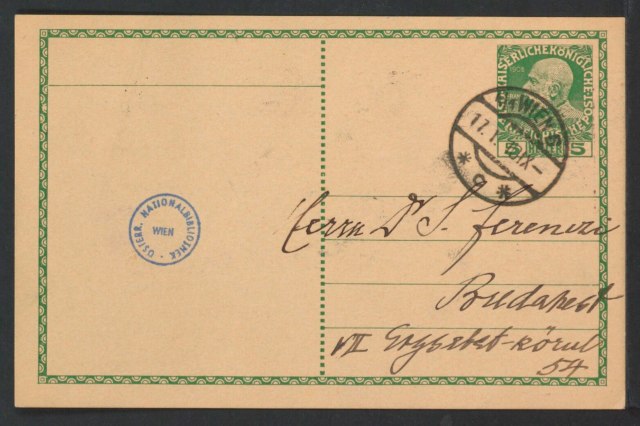 KAISERLICHE KÖNIGLICHE
1908
5 5
9/1 WIEN
17.
IX-
* 9 *
ÖSTERR. NATIONALBIBLIOTHEK
WIEN
Herrn Dr S. Ferenczi
Budapest
VII Erzsebet-körut
54